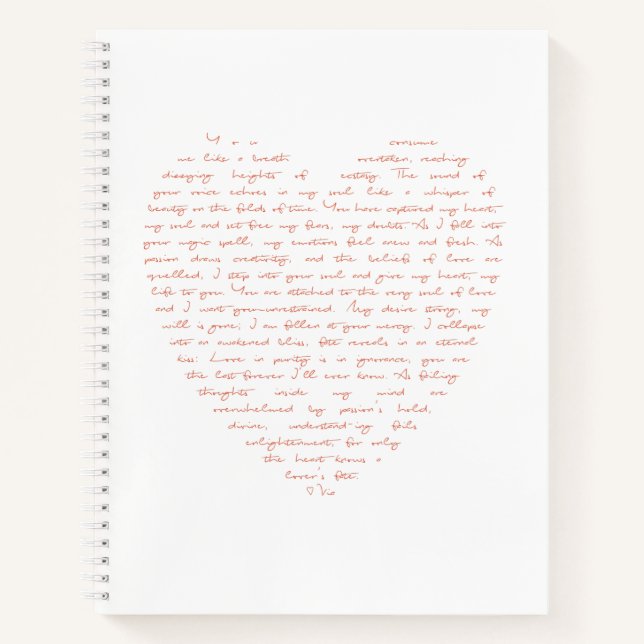 You consume
me like a breath overtaken, reaching
dizzying heights of ecstasy. The sound of
your voice echoes in my soul like a whisper of
beauty on the folds of time. You have captured my heart,
my soul and set free my fears, my doubts. As I fall into
your magic spell, my emotions feel anew and fresh. As
passion draws creativity, and the beliefs of love are
quelled, I step into your soul and give my heart, my
life to you. You are attached to the very soul of love
and I want you-unrestrained. My desire strong, my
will is gone; I am fallen at your mercy. I collapse
into an awakened bliss, fate reveals in an eternal
kiss: Love in purity is in ignorance; you are
the last forever I'll ever know. As failing
thoughts inside my mind are
overwhelmed by passion's hold,
divine, understand-ing fails
enlightenment, for only
the heart knows a
lover's fate.
♡ Via